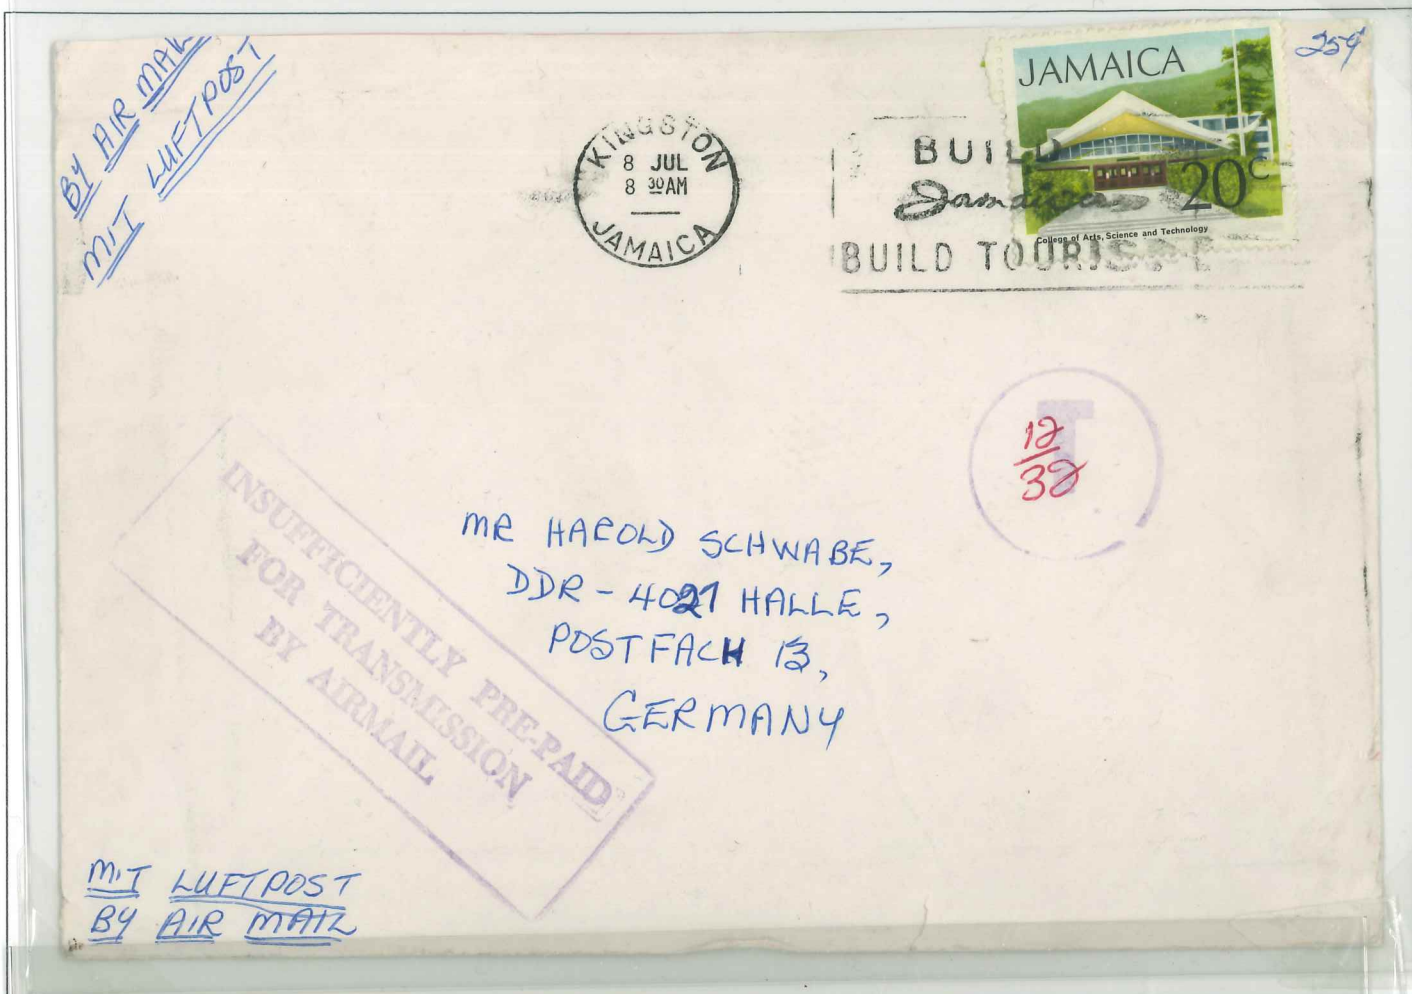 BY AIR MAIL
MIT LUFTPOST
KINGSTON
8 JUL
8 30AM
JAMAICA
BUILD
Jamaica
BUILD TOURISM
JAMAICA
20c
College of Arts, Science and Technology
25¢
T
12
32
INSUFFICIENTLY PRE-PAID
FOR TRANSMISSION
BY AIRMAIL
MR HAROLD SCHWABE,
DDR - 4021 HALLE,
POSTFACH 13,
GERMANY
MIT LUFTPOST
BY AIR MAIL